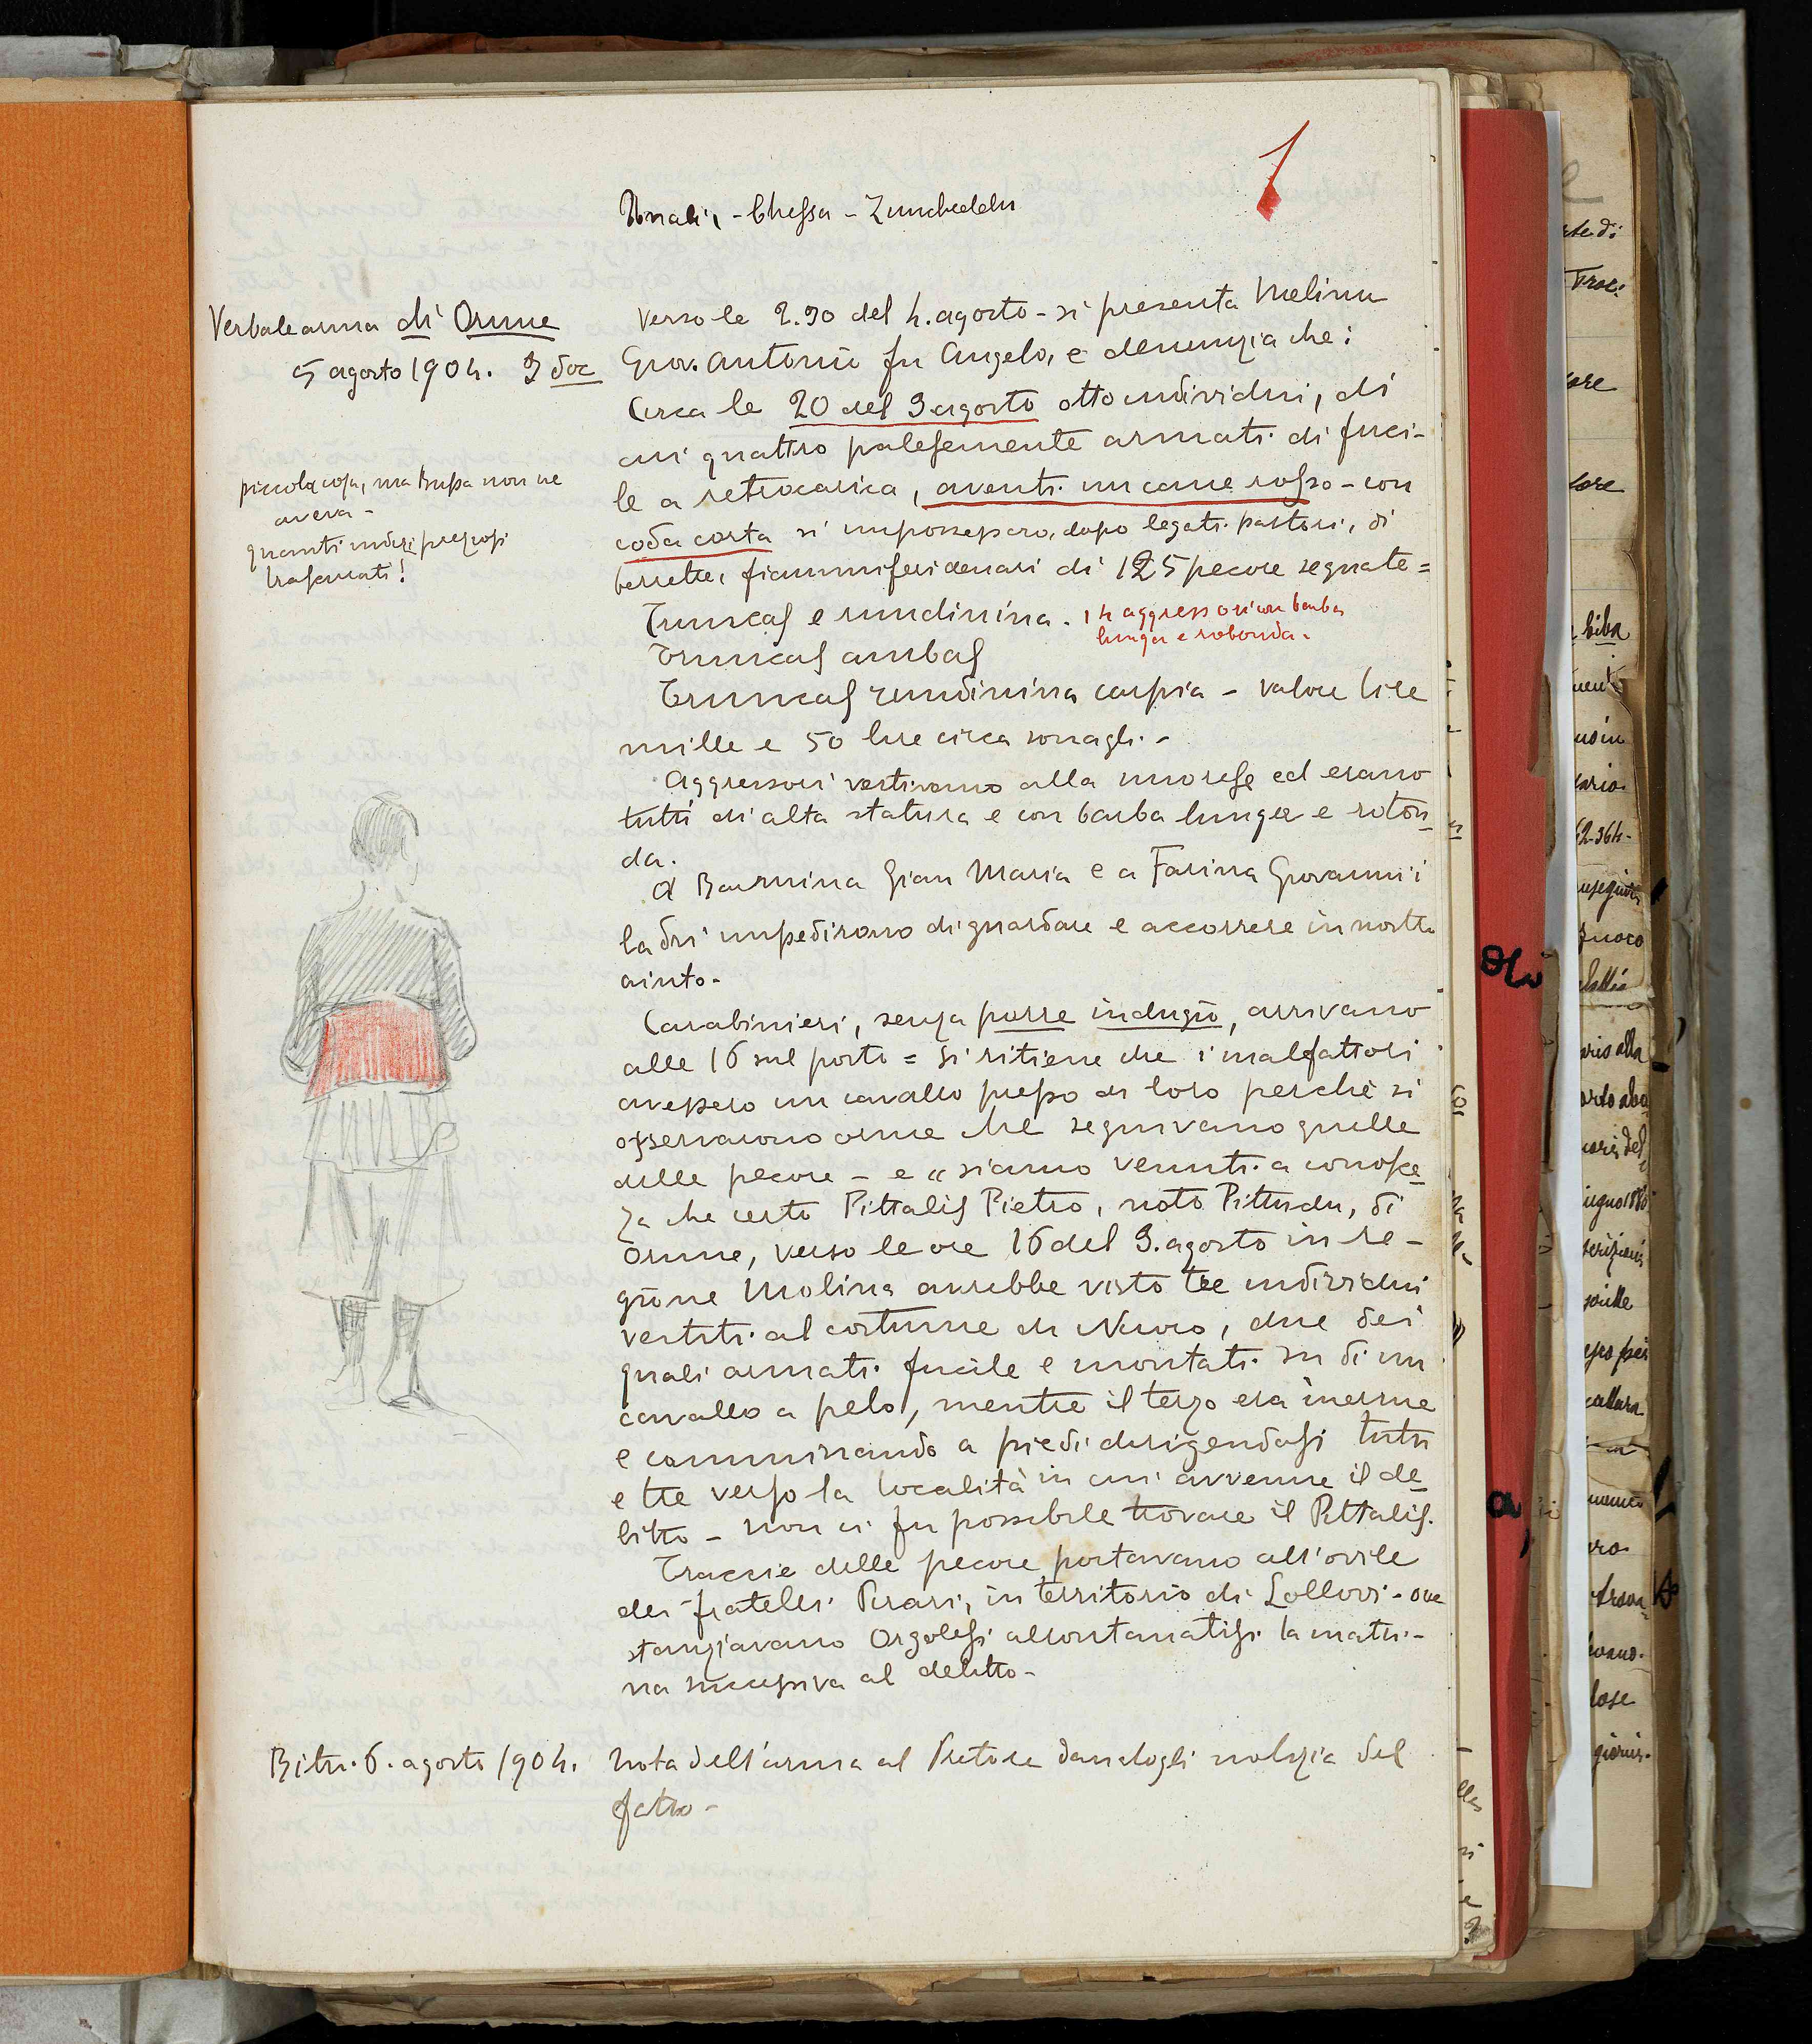 - Chessa - Zuncheddu
Verbale arma di Orune
5 agosto 1904. 3 doc
piccola cosa, ma Bussa non ne
aveva -
quanti indizi preziosi
trascurati!
Verso le 2.30 del 4. agosto - si presenta Melina
Giov. Antonio fu Angelo, e denunzia che:
Circa le 20 del 3 agosto otto individui, di
cui quattro palesemente armati di fuci-
le a retrocarica, aventi un cane rosso - con
coda corta si impossessaro, dopo legati pastori, di
berrette, fiammiferi denari di 125 pecore segnate =
Truncas e rundinina. i 4 aggressori con barba
lunga e rotonda.
Truncas ambas
Truncas rundinina carpia - valore lire
mille e 50 lire circa sonagli -
Aggressori vestivano alla nuorese ed erano
tutti di alta statura e con barba lunga e roton
da.
A Gian Maria e a Farina Giovanni i
ladri impedirono di guardare e accorrere in nostro
aiuto -
Carabinieri, senza porre indugio, arrivano
alle 16 sul posto = Si ritiene che i malfattori
avessero un cavallo presso di loro perchè si
osservarono orme che seguivano quelle
delle pecore - e "siamo venuti a conosce
za che certo Pittalis Pietro, noto Pittudu, di
Orune, verso le ore 16 del 3. agosto in re-
gione Molina avrebbe visto tre individui
vestiti al costume di Nuoro, due dei
quali armati fucile e montati su di un
cavallo a pelo, mentre il terzo era inerme
e camminando a piedi dirigendosi tutti
e tre verso la località in cui avvenne il de
litto - Non ci fu possibile trovare il Pittalis.
Traccie delle pecore portavano all'ovile
dei fratelli Pirari, in territorio di Lollovi - ove
stanziavano Orgolesi allontanatisi la matti-
na successiva al delitto -
Bitti. 6. agosto 1904. Nota dell'arma al Pretore dandogli notizia del
fatto -